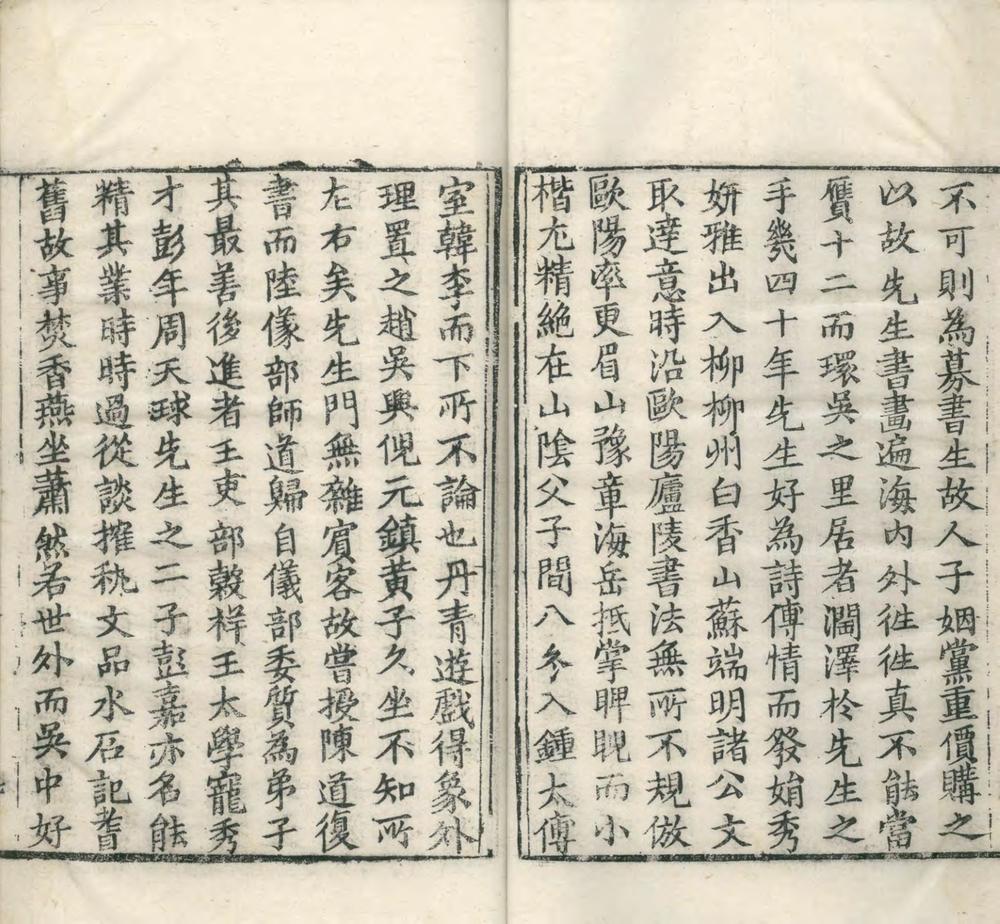 不可則為募書生故人子姻黨重價購之
以故先生書畫遍海内外徃徃真不能當
贗十二而環吳之里居者濶澤於先生之
手幾四十年先生好為詩傳情而發娟秀
妍雅出入柳柳州白香山蘇端明諸公文
取達意時沿歐陽廬陵書法無所不規倣
歐陽率更眉山豫章海岳抵掌睥睨而小
楷尤精絶在山陰父子間八分入鍾太傅
室韓李而下所不論也丹青遊戲得象外
理置之趙吳興倪元鎮黄子久坐不知所
左右矣先生門無雜賓客故嘗授陳道復
書而陸儀部師道歸自儀部委質為弟子
其最善後進者王吏部穀祥王太學寵秀
才彭年周天球先生之二子彭嘉亦名能
精其業時時過從談搉秇文品水石記耆
舊故事焚香燕坐蕭然若世外而吳中好